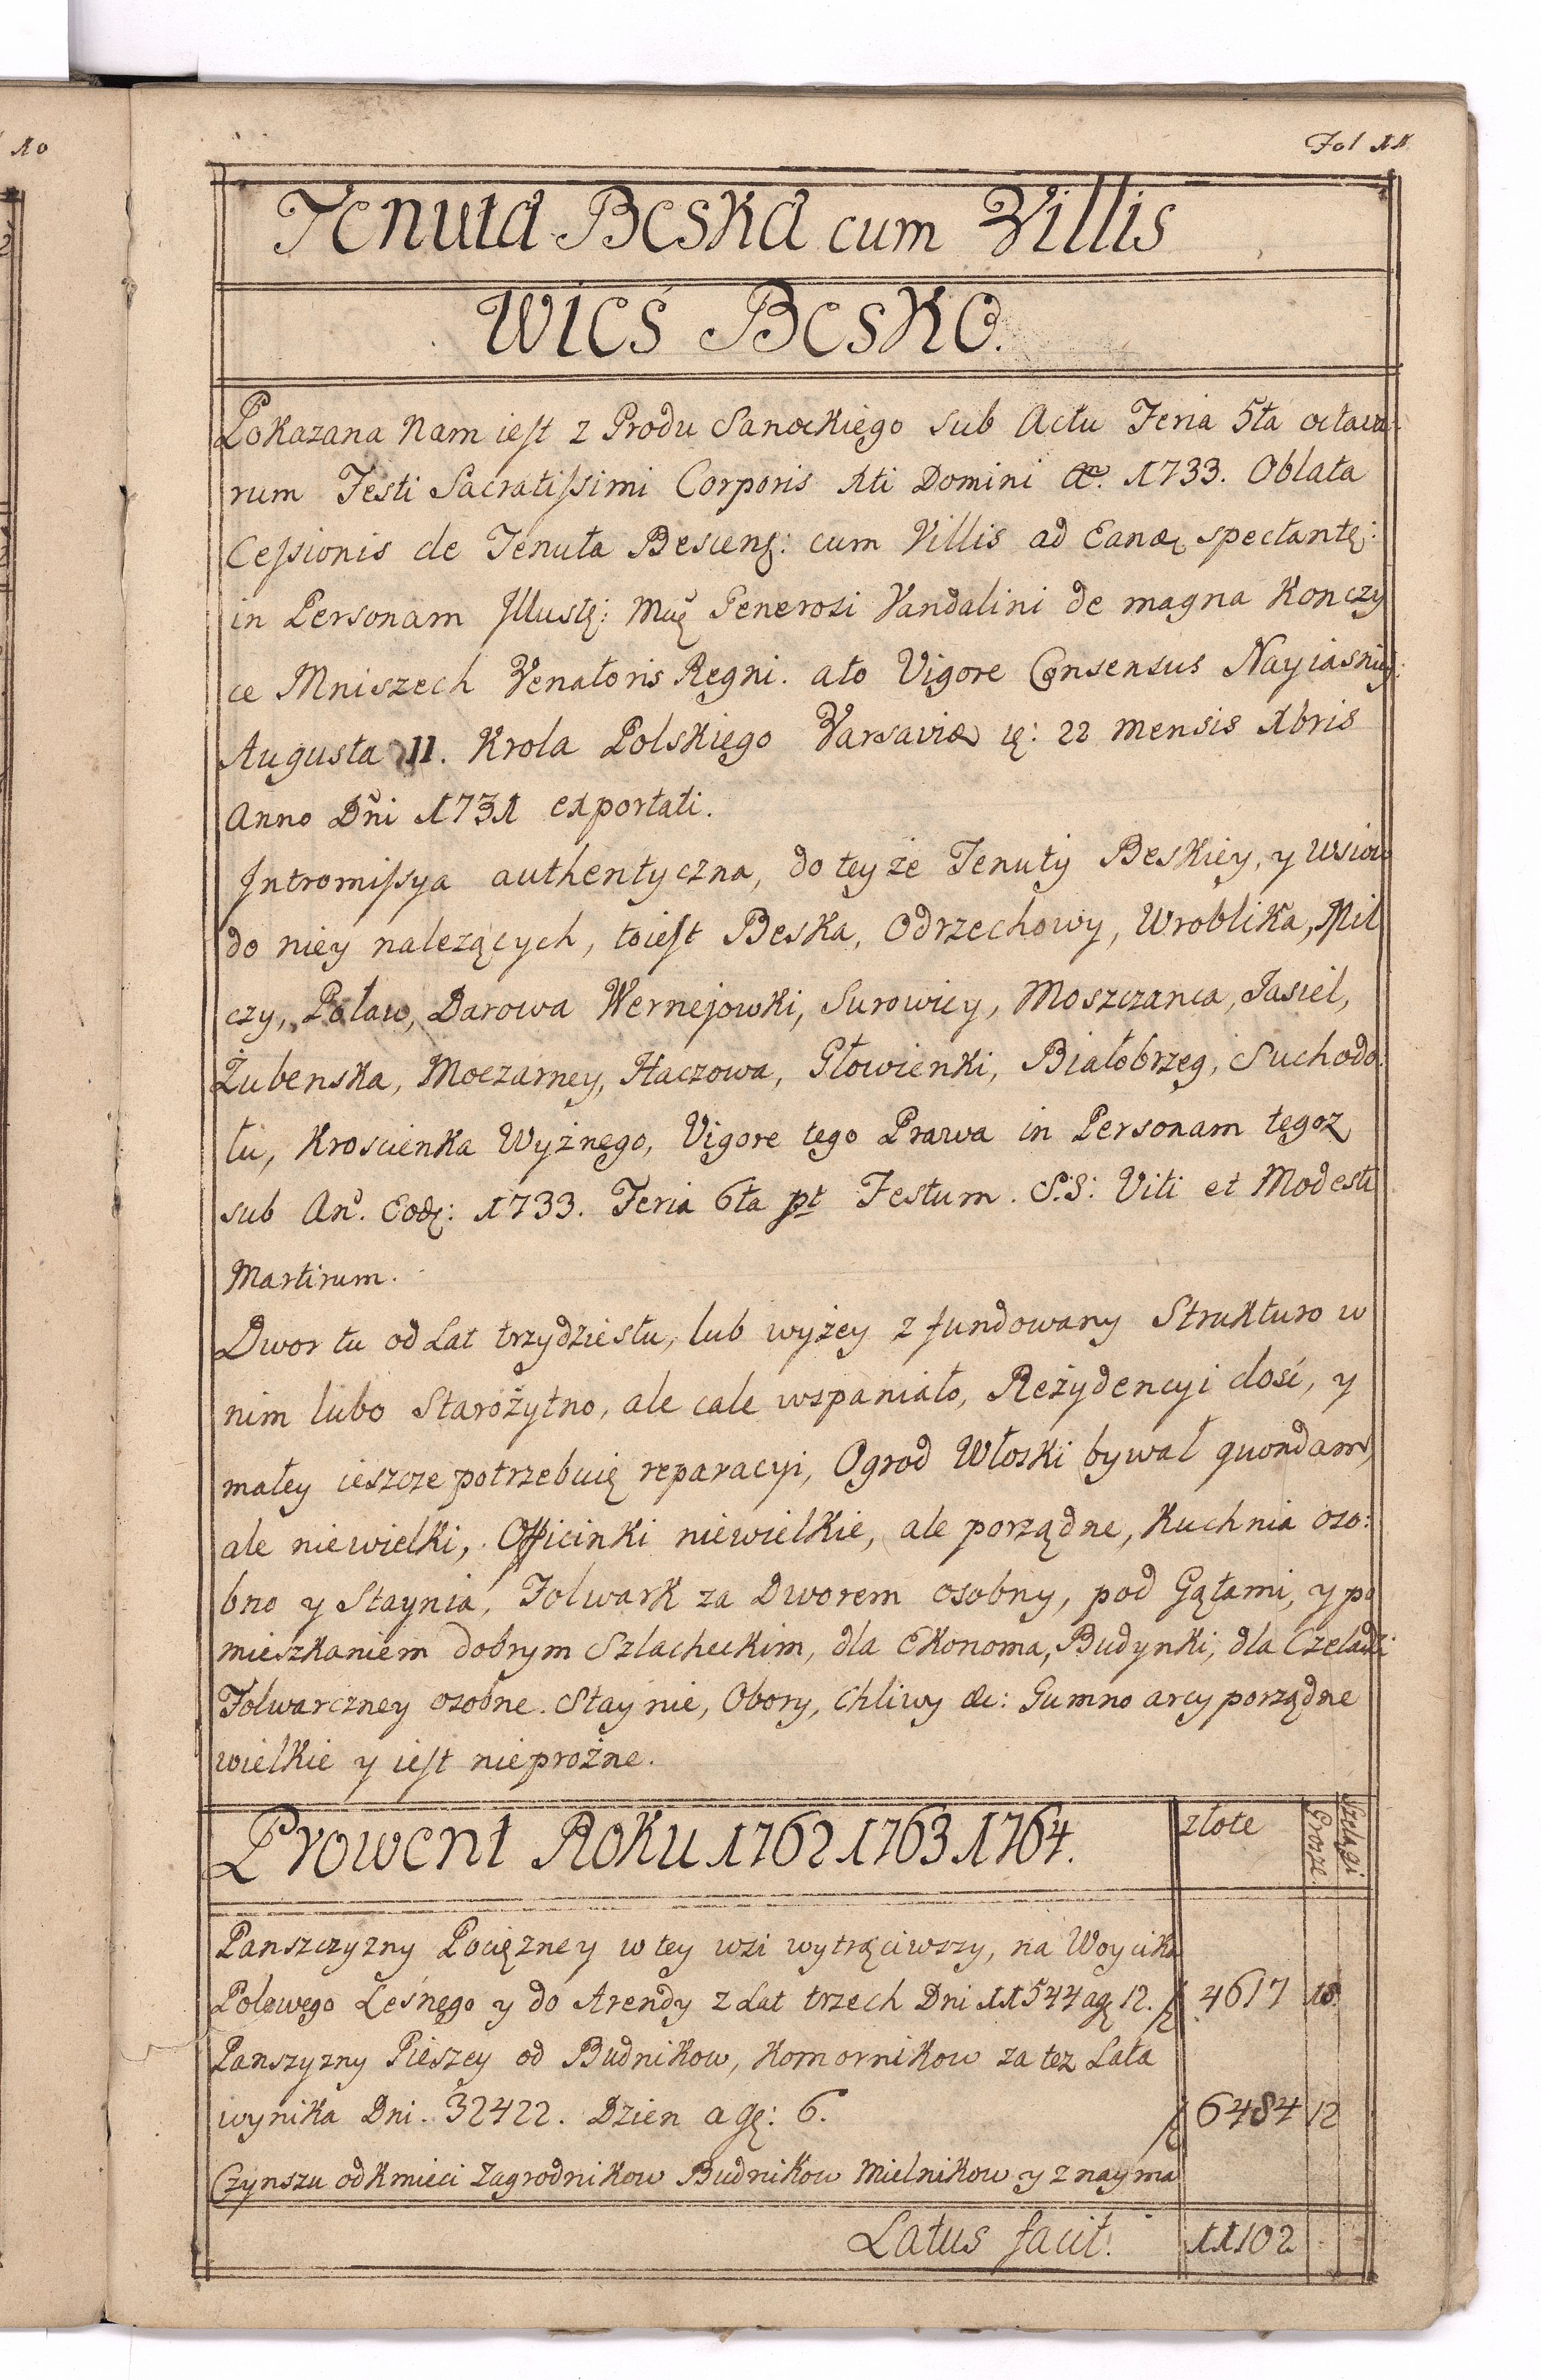 10
Fol 11
Tenuta Beska cum Villis
Wieś Besko.
Pokazana Nam iest z Grodu Sanockiego sub Actu Feria 5ta octava-
rum Festi Sacratissimi Corporis Xti Domini Aº. 1733. Oblata
Cessionis de Tenuta Bescens: cum Villis ad Eandę spectantę:
in Personam Illustę: Mag Generosi Vandalini de magna Konczy
ce Mniszech Venatoris Regni. ato Vigore Consensus Nayiasniey:
Augusta II. Krola Polskiego Varsaviæ ię: 22 mensis Xbris
Anno Dñi 1731 exportati.
Intromissya authentyczna, do teyże Tenuty Beskiey, y Wsiow
do niey nalezących, toiest Beska, Odrzechowy, Wroblika, Mil
czy, Polaw, Darowa Wernejowki, Surowicy, Moszczanca, Jasiel,
Żubenska, Moczarney, Haczowa, Głowienki, Białobrzeg, Suchodo:
łu, Kroscienka Wyżnego, Vigore tego Prawa in Personam tegoz
sub An. Eodę: 1733. Feria 6ta pt Festum. S:S: Viti et Modesti
Martirum.
Dwor tu od Lat trzydziestu, lub wyżey z fundowany Strukturo w
nim lubo Starożytno, ale cale wspaniało, Reżydencyi dosć, y
małey ieszcze potrzebuię reparacyi, Ogrod Włoski bywał quondam,
ale niewielki, Officinki niewielkie, ale porządne, Kuchnia oso:
bno y Staynia, Folwark za Dworem osobny, pod Gątami, y po
mieszkaniem dobrym Szlacheckim, dla Ekonoma, Budynki, dla Czeladzi
Folwarczney osobne. Staynie, Obory, Chliwy &c: Gumno arcy porządne
wielkie y iest nieprożne.
Prowent Roku 1762 1763 1764.
złote
Grosze.
Szelągi
Panszczyzny Pociężney w tey wsi wytrąciwszy, na Woycika
Polowego Leśnego y do Arendy z Lat trzech Dni 11544 agę 12. 4617 18.
Panszyzny Pieszey od Budnikow, Komornikow za tez Lata
wynika Dni. 32422. Dzien a gę: 6. 6484 12
Czynszu od Kmieci Zagrodnikow Budnikow Mielnikow y z nayma
Latus facit. 11102